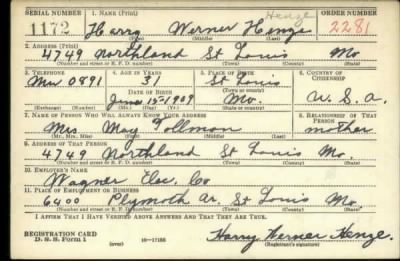 SERIAL NUMBER 1. NAME (Print) Henze ORDER NUMBER
1172 Harry Werner Henze 2281
(First) (Middle) (Last)
2. ADDRESS (Print)
4749 Northland St Louis Mo
(Number and street or R. F. D. number) (Town) (County) (State)
3. TELEPHONE 4. AGE IN YEARS 5. PLACE OF BIRTH 6. COUNTRY OF CITIZENSHIP
Mu 0891 31 St Louis
DATE OF BIRTH
June 15-1909 Mo. U. S. A.
(Exchange) (Number) (Mo.) (Day) (Yr.) (State or country)
7. NAME OF PERSON WHO WILL ALWAYS KNOW YOUR ADDRESS 8. RELATIONSHIP OF THAT PERSON
Mrs May Tollman mother
(Mr., Mrs., Miss) (First) (Middle) (Last)
9. ADDRESS OF THAT PERSON
4749 Northland St Louis Mo
(Number and street or R. F. D. number) (Town) (County) (State)
10. EMPLOYER'S NAME
Wagner Elec. Co
11. PLACE OF EMPLOYMENT OR BUSINESS
6400 Plymoth Av. St Louis Mo.
(Number and street or R. F. D. number) (Town) (County) (State)
I AFFIRM THAT I HAVE VERIFIED ABOVE ANSWERS AND THAT THEY ARE TRUE.
REGISTRATION CARD
D. S. S. Form 1 (over) 16-17105 Harry Werner Henze
(Registrant's signature)